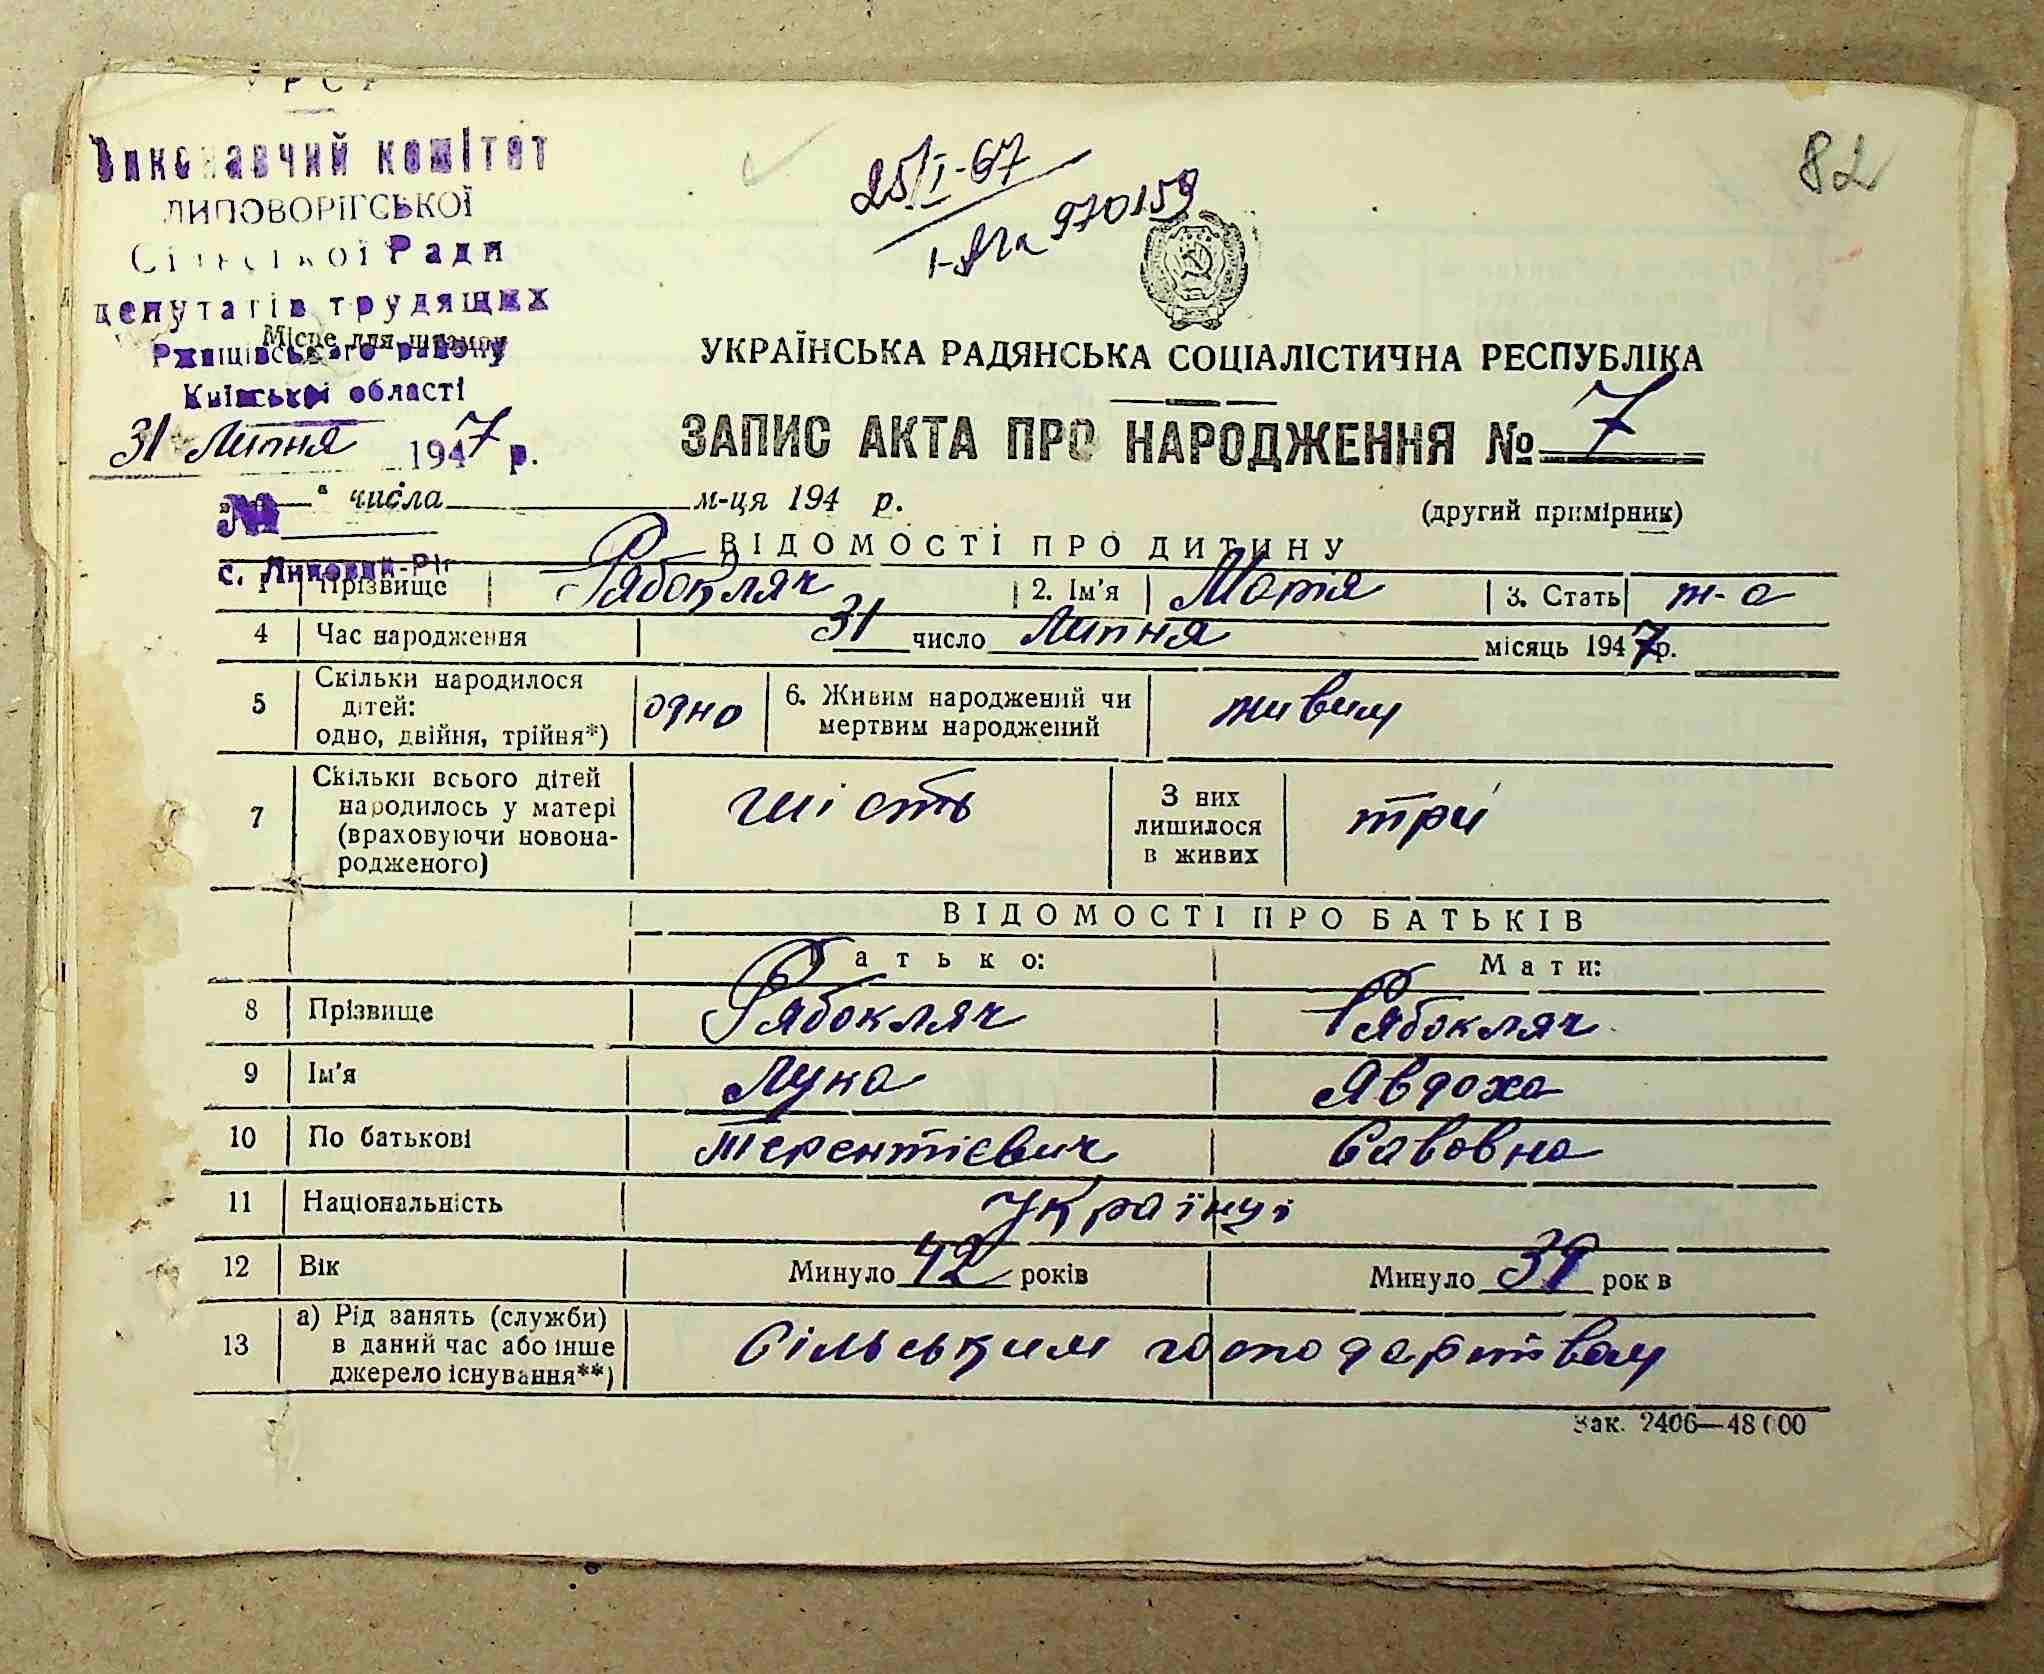 УРСР
Виконавчий комітет
ЛИПОВОРІГСЬКОЇ
Сільської Ради
депутатів трудящих
Місце для штампу
Ржищівського району
Київської області
31 Липня 1947 р.
№
с. Липовий-Ріг
25/I-67
970159
82
УКРАЇНСЬКА РАДЯНСЬКА СОЦІАЛІСТИЧНА РЕСПУБЛІКА
ЗАПИС АКТА ПРО НАРОДЖЕННЯ № 7
" числа м-ця 194 р.
(другий примірник)
ВІДОМОСТІ ПРО ДИТИНУ
1 Прізвище Рябокляч 2. Ім'я Мотя 3. Стать ж-а
4 Час народження 31 число Липня місяць 1947 р.
5 Скільки народилося дітей: одно, двійня, трійня*) одно 6. Живим народжений чи мертвим народжений живим
7 Скільки всього дітей народилось у матері (враховуючи новонародженого) шість З них лишилося в живих три
ВІДОМОСТІ ПРО БАТЬКІВ
Батько: Мати:
8 Прізвище Рябокляч Рябокляч
9 Ім'я Лука Явдоха
10 По батькові Терентієвич Савовна
11 Національність Українці
12 Вік Минуло 42 років Минуло 39 років
13 а) Рід занять (служби) в даний час або інше джерело існування**) Сільським господарством
Зак. 2406—48000